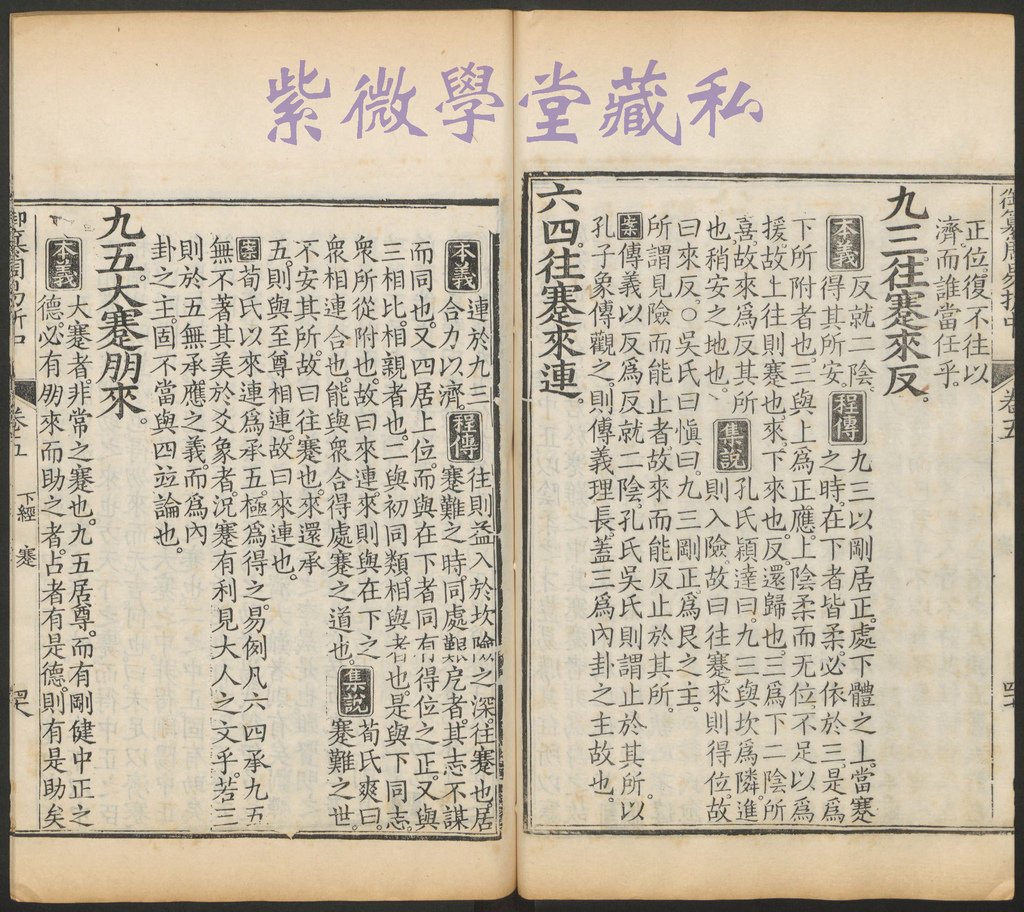 紫微學堂藏私
正位。復不往以
濟。而誰當任乎。
九三。往蹇來反。
本義 反就二陰。
得其所安。
程傳 九三以剛居正。處下體之上。當蹇
之時。在下者皆柔。必依於三。是爲
下所附者也。三與上爲正應。上陰柔而无位。不足以爲
援。故上往則蹇也。來。下來也。反。還歸也。三爲下二陰所
喜。故來爲反其所
也。稍安之地也。
集說 孔氏穎達曰。九三與坎爲隣。進
則入險。故曰往蹇。來則得位。故
曰來反。○吳氏曰愼曰。九三剛正。爲艮之主。
所謂見險而能止者。故來而能反止於其所。
案 傳義以反爲反就二陰。孔氏吳氏則謂止於其所。以
孔子象傳觀之。則傳義理長。蓋三爲內卦之主故也。
六四。往蹇來連。
本義 連於九三。
合力以濟。
程傳 往則益入於坎險之深。往蹇也。居
蹇難之時。同處艱戹者。其志不謀
而同也。又四居上位。而與在下者同有得位之正。又與
三相比。相親者也。二與初同類。相與者也。是與下同志。
衆所從附也。故曰來連。來則與在下之
衆相連合也。能與衆合。得處蹇之道也。
集說 荀氏爽曰。
蹇難之世。
不安其所。故曰往蹇也。來還承
五。則與至尊相連。故曰來連也。
案 荀氏以來連爲承五。極爲得之。易例凡六四承九五。
無不著其美於爻象者。況蹇有利見大人之文乎。若三
則於五無承應之義。而爲內
卦之主。固不當與四竝論也。
九五。大蹇朋來。
本義 大蹇者。非常之蹇也。九五居尊。而有剛健中正之
德。必有朋來而助之者。占者有是德。則有是助矣
卷五 下經 蹇